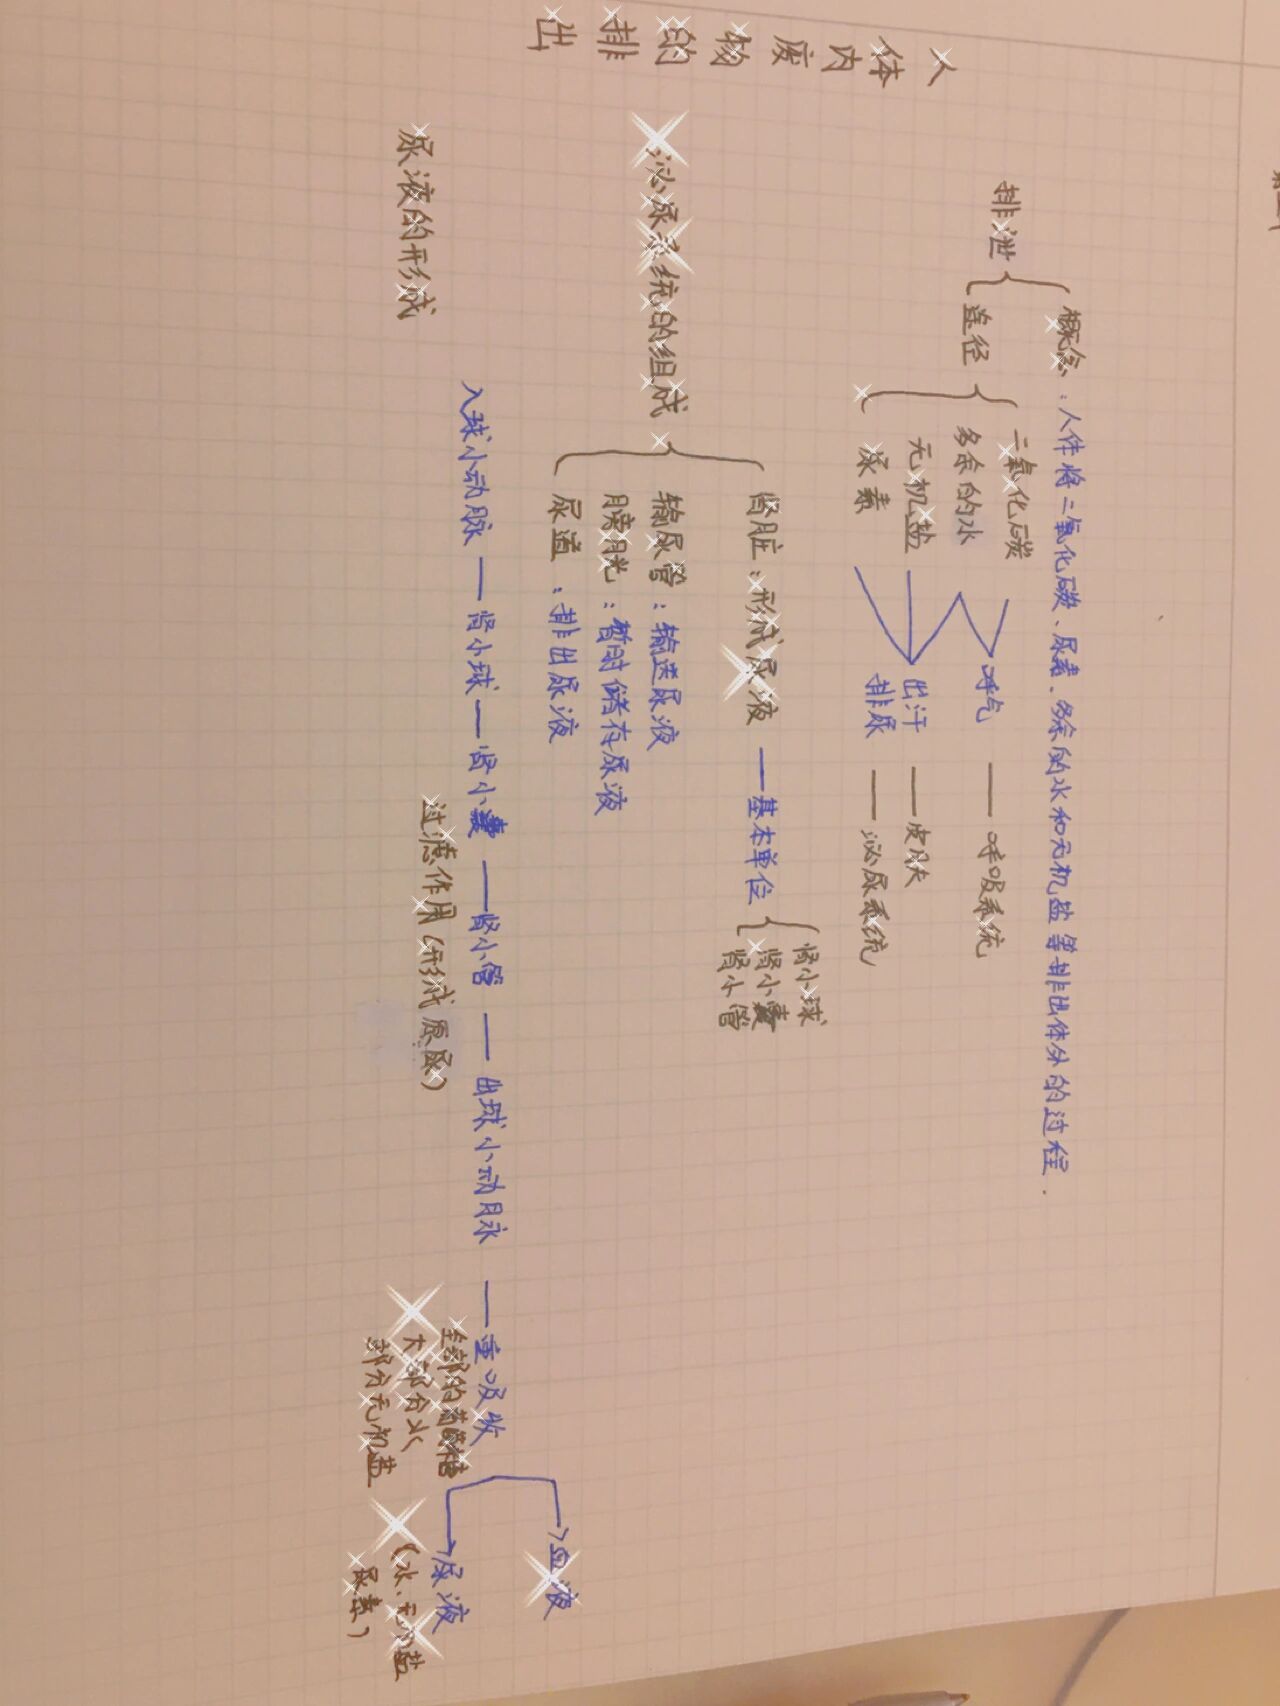 人体内废物的排出
概念：人体将二氧化碳、尿素、多余的水和无机盐等排出体外的过程.
排泄
途径
二氧化碳
多余的水
无机盐
尿素
呼气——呼吸系统
出汗——皮肤
排尿——泌尿系统
泌尿系统的组成
肾脏：形成尿液——基本单位
肾小球
肾小囊
肾小管
输尿管：输送尿液
膀胱：暂时储存尿液
尿道：排出尿液
尿液的形成
入球小动脉——肾小球——肾小囊——肾小管——出球小动脉——重吸收
过滤作用(形成原尿)
全部的葡萄糖
大部分水
部分无机盐
血液
尿液
(水、无机盐
尿素)